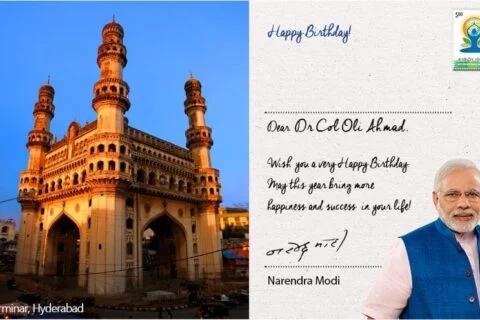 Happy Birthday!
5.00
Dear Dr Col Oli Ahmad,
Wish you a very Happy Birthday
May this year bring more
happiness and success in your life!
नरेंद्र मोदी
Narendra Modi
rminar, Hyderabad